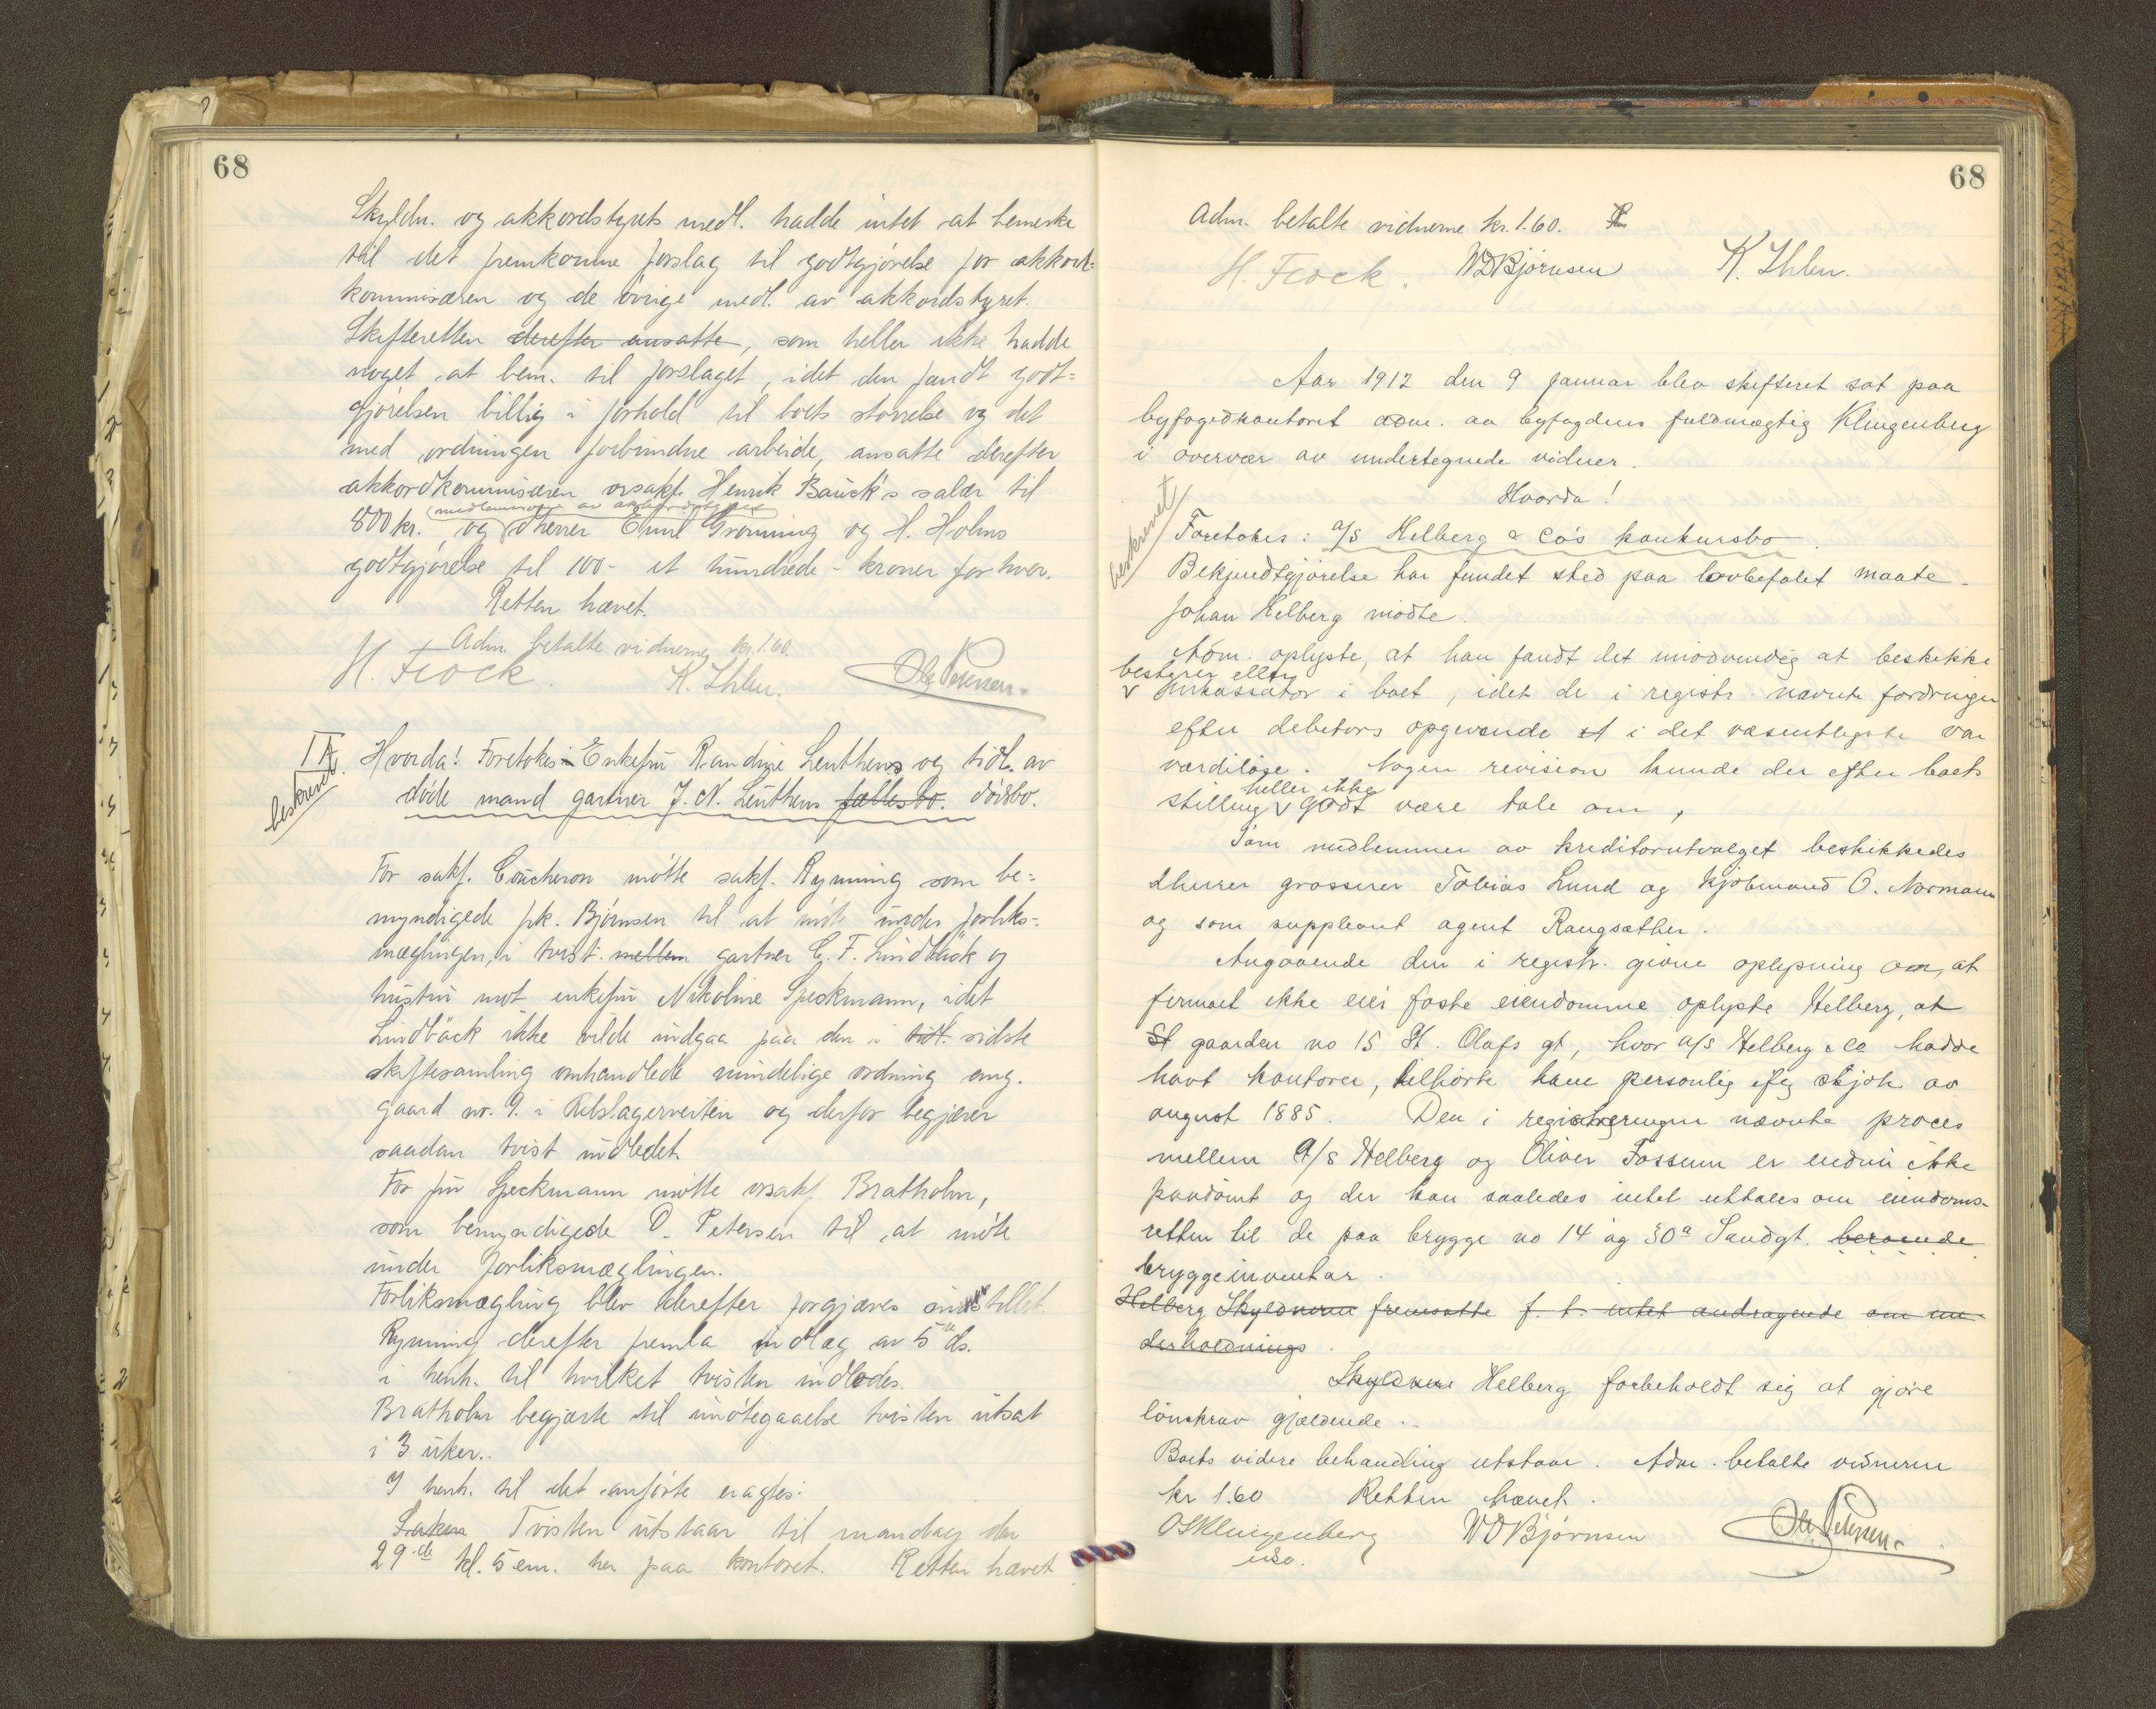 68
Skyldn. og akkordstyrets medl. hadde intet at bemerke
til det fremkomne forslag til godtgjörelse for akkord-
kommisæren og de övrige medl. av akkordstyret.
Skifteretten derefter ansatte, som heller ikke hadde
noget at bem. til forslaget, idet den fandt godt-
gjörelsen billig i forhold til boets störrelse og det
med ordningen forbundne arbeide, ansatte derefter
akkordkommisæren orsakf. Henrik Bauck's salær til
(medlemmerne av akkordstyret
800 kr., og dherrer Emil Grönning og H. Holms
godtgjörelse til 100 - et hundrede - kroner for hver.
Retten hævet.
Adm. betalte vidnerne kr. 1.60.
H. Frock. K. Ihlen. Ole Petersen.
IX. Hvorda! Foretokes Enkefru Randine Leuthens og tidl. av
beskrevet
døde mand gartner J. N. Leuthens fællesbo. dödsbo.
For sakf. Coucheron mötte sakf. Rynning som be-
myndigede fk. Björnsen til at möte under forliks-
mæglingen, i tvist mellem gartner C. F. Lindbäck og
hustru mot enkefru Nikoline Speckmann, idet
Lindbäck ikke vilde indgaa paa den i sidt. sidste
skiftesamling omhandlede mindelige ordning ang.
gaard nr. 9. i Repslagerveiten og derfor begjærer
saadan tvist indledet.
For fru Speckmann mötte orsakf Bratholm,
som bemyndigede O. Petersen til at möte
under forliksmæglingen.
Forliksmægling blev derefter forgjæves indstillet.
Rynning derefter fremla indlæg av 5te ds.
i henh. til hvilket tvisten indledes.
Bratholm begjærte til imötegaaelse tvisten utsat
i 3 uker.
I henh. til det anförte eragtes:
Saken Tvisten utstaar til mandag den
29de kl. 5 em. her paa kontoret. Retten hævet
68
Adm. betalte vidnerne kr. 1.60.
H. Frock. WDBjörnsen K. Ihlen.
Aar 1912 den 9 januar blev skifteret sat paa
byfogedkontoret adm. av byfogdens fuldmægtig Klingenberg
i overvær av undertegnede vidner.
Hvorda!
beskrevet
Foretokes: a/s Helberg & Co's konkursbo.
Bekjendtgjörelse har fundet sted paa lovbefalet maate.
Johan Helberg mödte.
Adm. oplyste, at han fandt det unödvendig at beskikke
bestyrer eller
v inkassator i boet, idet de i registr. nævnte fordringer
efter debitors opgivende et i det væsentligste var
værdilöse. Nogen revision kunde der efter boets
heller ikke
stilling v godt være tale om.
Som medlemmer av kreditorutvalget beskikkedes
dherrer grosserer Tobias Lund og kjöbmand O. Normann
og som suppleant agent Rangsæther.
Angaaende den i registr. givne oplysning om, at
firmaet ikke eier faste eiendomme oplyste Helberg, at
St gaarden no 15 St. Olafs gt, hvor a/s Helberg & Co hadde
havt kontorer, tilhörte ham personlig ifg skjöte av
august 1885. Den i registreringen nævnte proces
mellem A/s Helberg og Oliver Fossum er endnu ikke
paadömt og der kan saaledes intet uttales om eiendoms-
retten til de paa brygge no 14 og 30a Sandgt. beroende
bryggeinventar.
Helberg Skyldneren fremsatte f. t. intet andragende om un-
derholdnings.
Skyldner Helberg forbeholdt sig at gjöre
lönskrav gjældende.
Boets videre behandling utstaar. Adm. betalte vidnerne
kr 1.60 Retten hævet.
OSKlingenberg WDBjörnsen Ole Petersen.